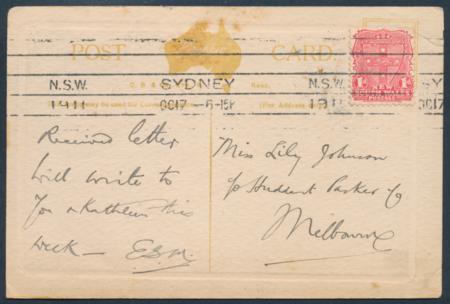 POST CARD.
N.S.W. SYDNEY N.S.W.
1911 OC17 -6-15P 1911
1d 1d
Received letter
will write to
you & Kathleen this
week — E.B.M.
Miss Lily Johnson
c/o Huddart Parker Co
Melbourne